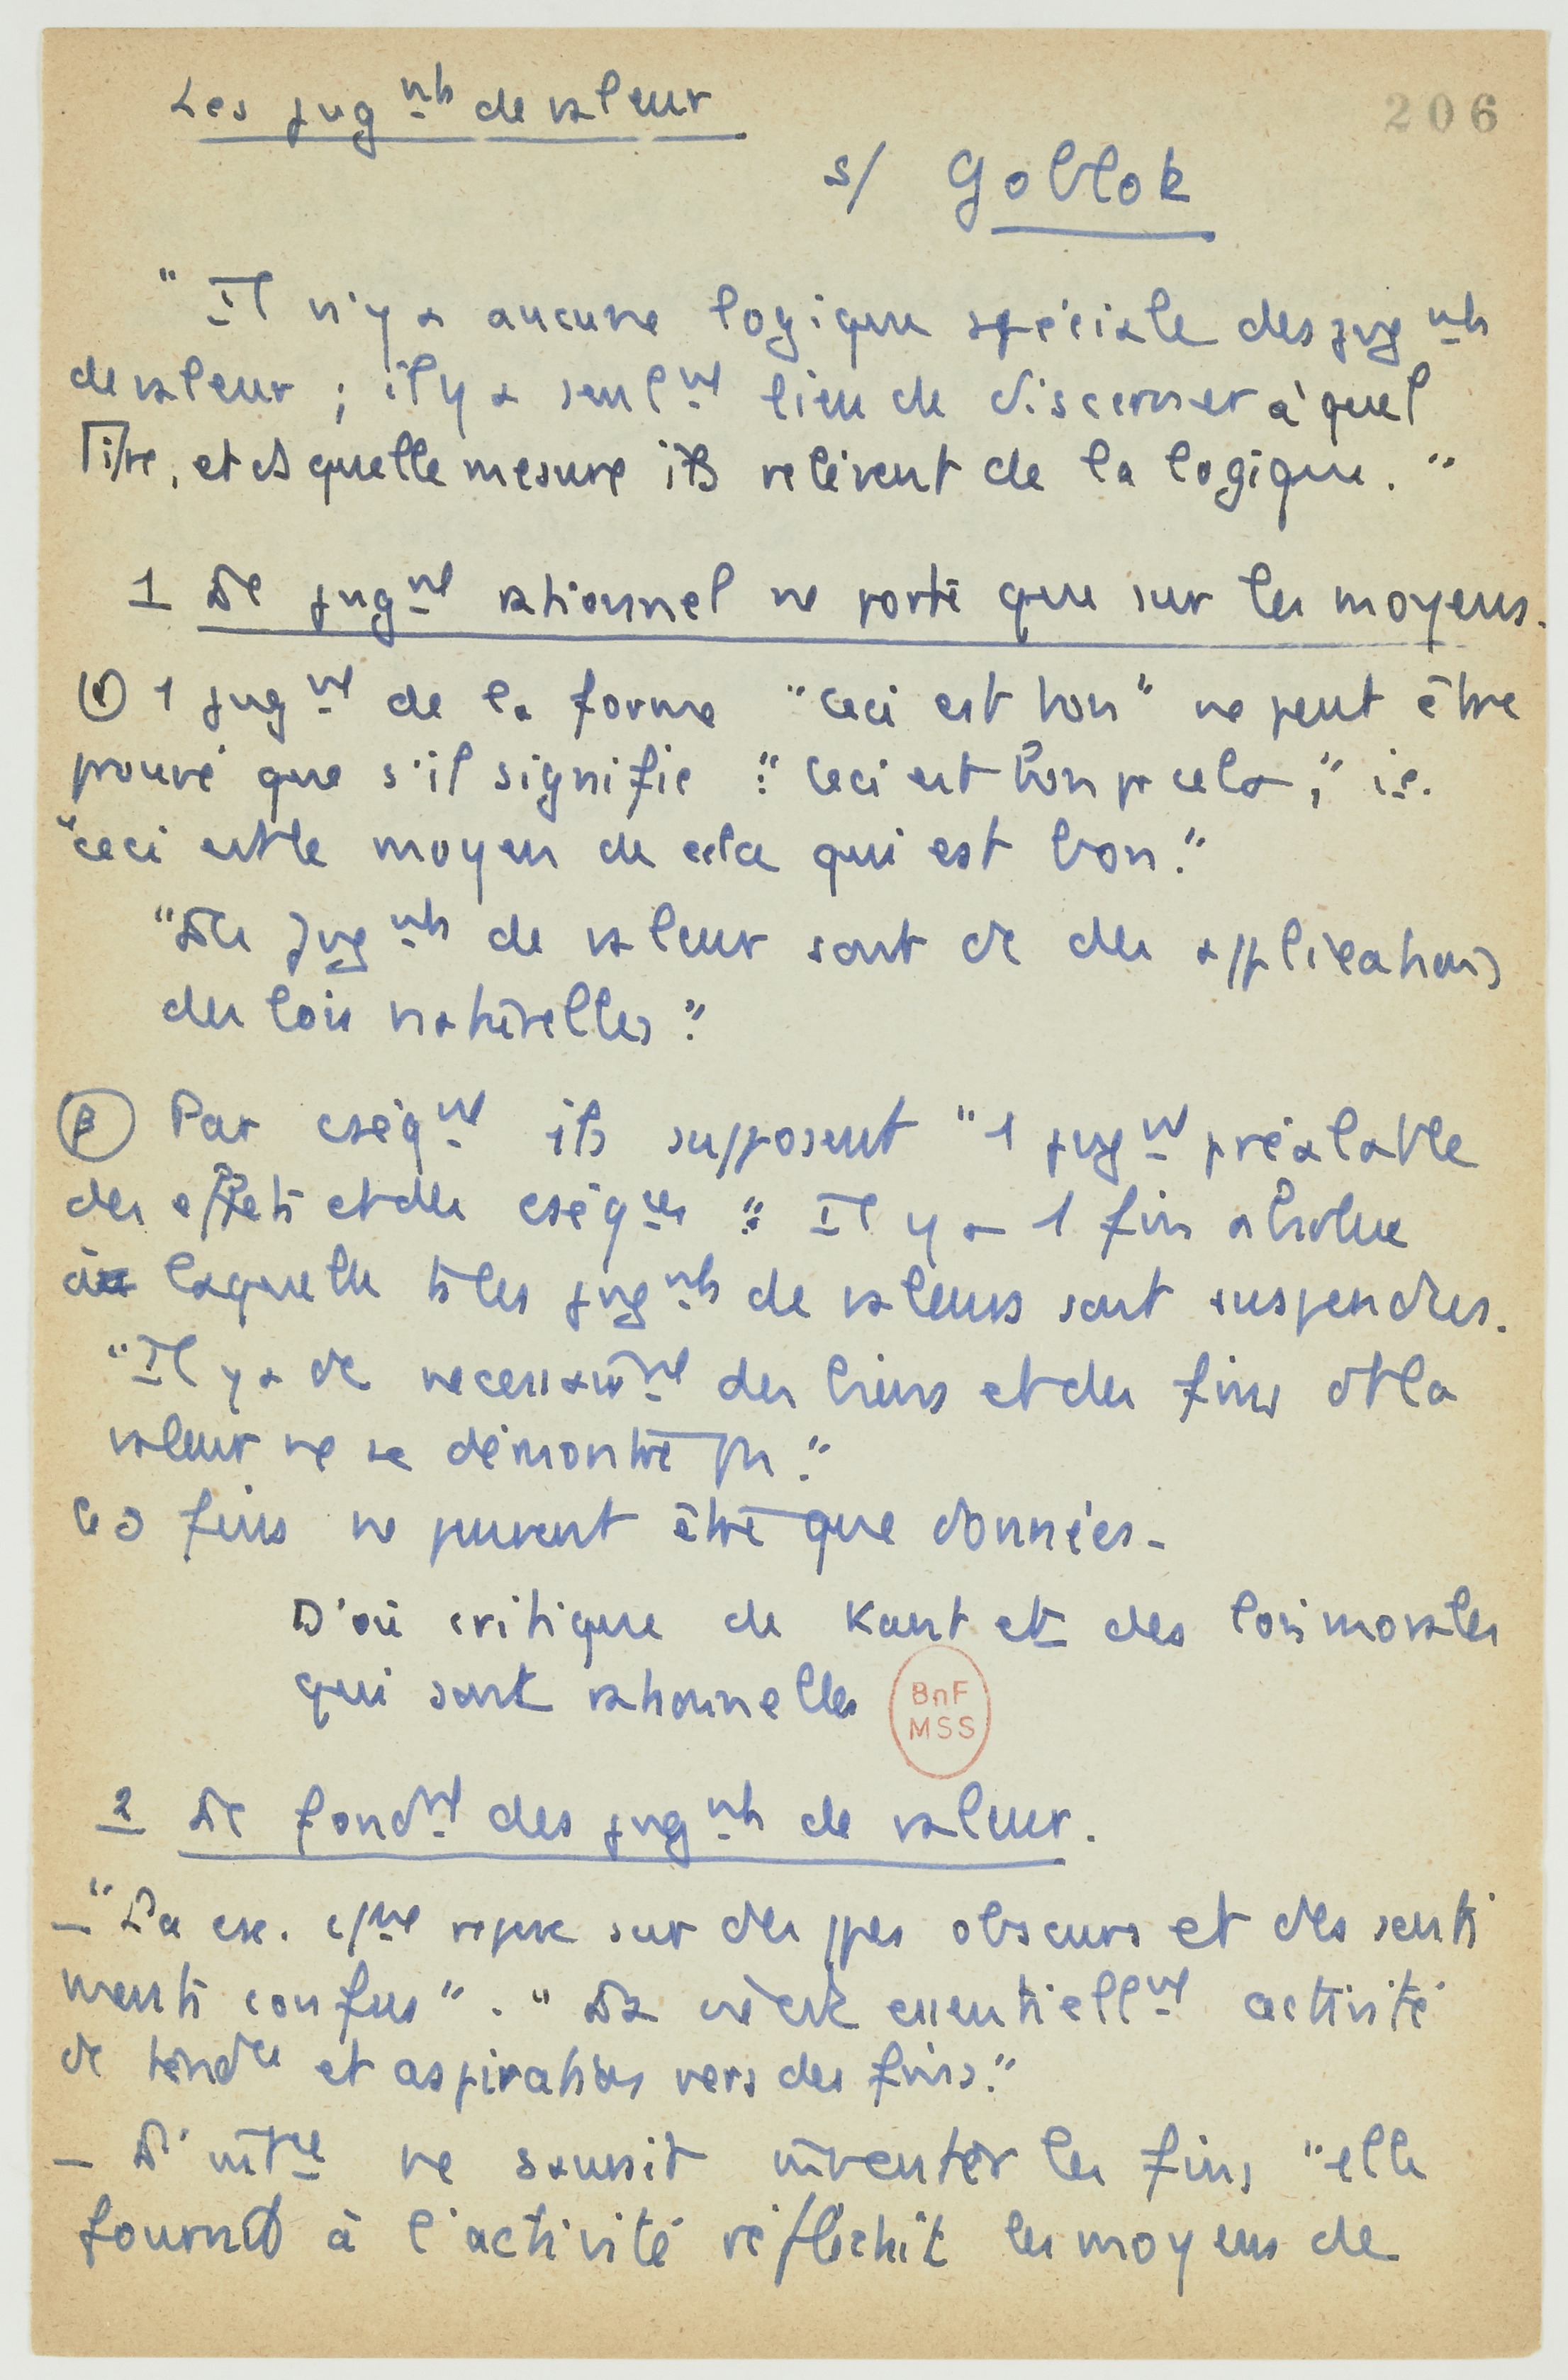 Les jug^nts de valeur
206
s/ Goblok
"Il n'y a aucune logique spéciale des jug^nts
de valeur ; il y a seul^nt lieu de discerner à quel
titre, et ds quelle mesure ils relèvent de la logique."
1 Le jug^nt rationnel ne porte que sur les moyens.
α 1 jug^nt de la forme "ceci est bon" ne peut être
prouvé que s'il signifie : "ceci est bon pr cela", ie.
"ceci est le moyen de cela qui est bon."
"Les jug^nts de valeur sont dc des applications
des lois naturelles."
β Par cséq^nt ils supposent "1 jug^nt préalable
des effets et des cséq^ces". Il y a 1 fin absolue
à laquelle ts les jug^nts de valeurs sont suspendues.
"Il y a dc nécessair^nt des biens et des fins dt la
valeur ne se démontre pas."
Ces fins ne peuvent être que données.
D'où critique de Kant et des lois morales
qui sont rationnelles
BnF
MSS
2 Le fond^nt des jug^nts de valeur.
- "La csc. repose sur des ppes obscurs et des senti
ments confus". "La vie est essentiell^nt activité
dc tend^ces et aspirations vers des fins."
- L'int^ce ne saurait inventer les fins "elle
fournit à l'activité réfléchie les moyens de